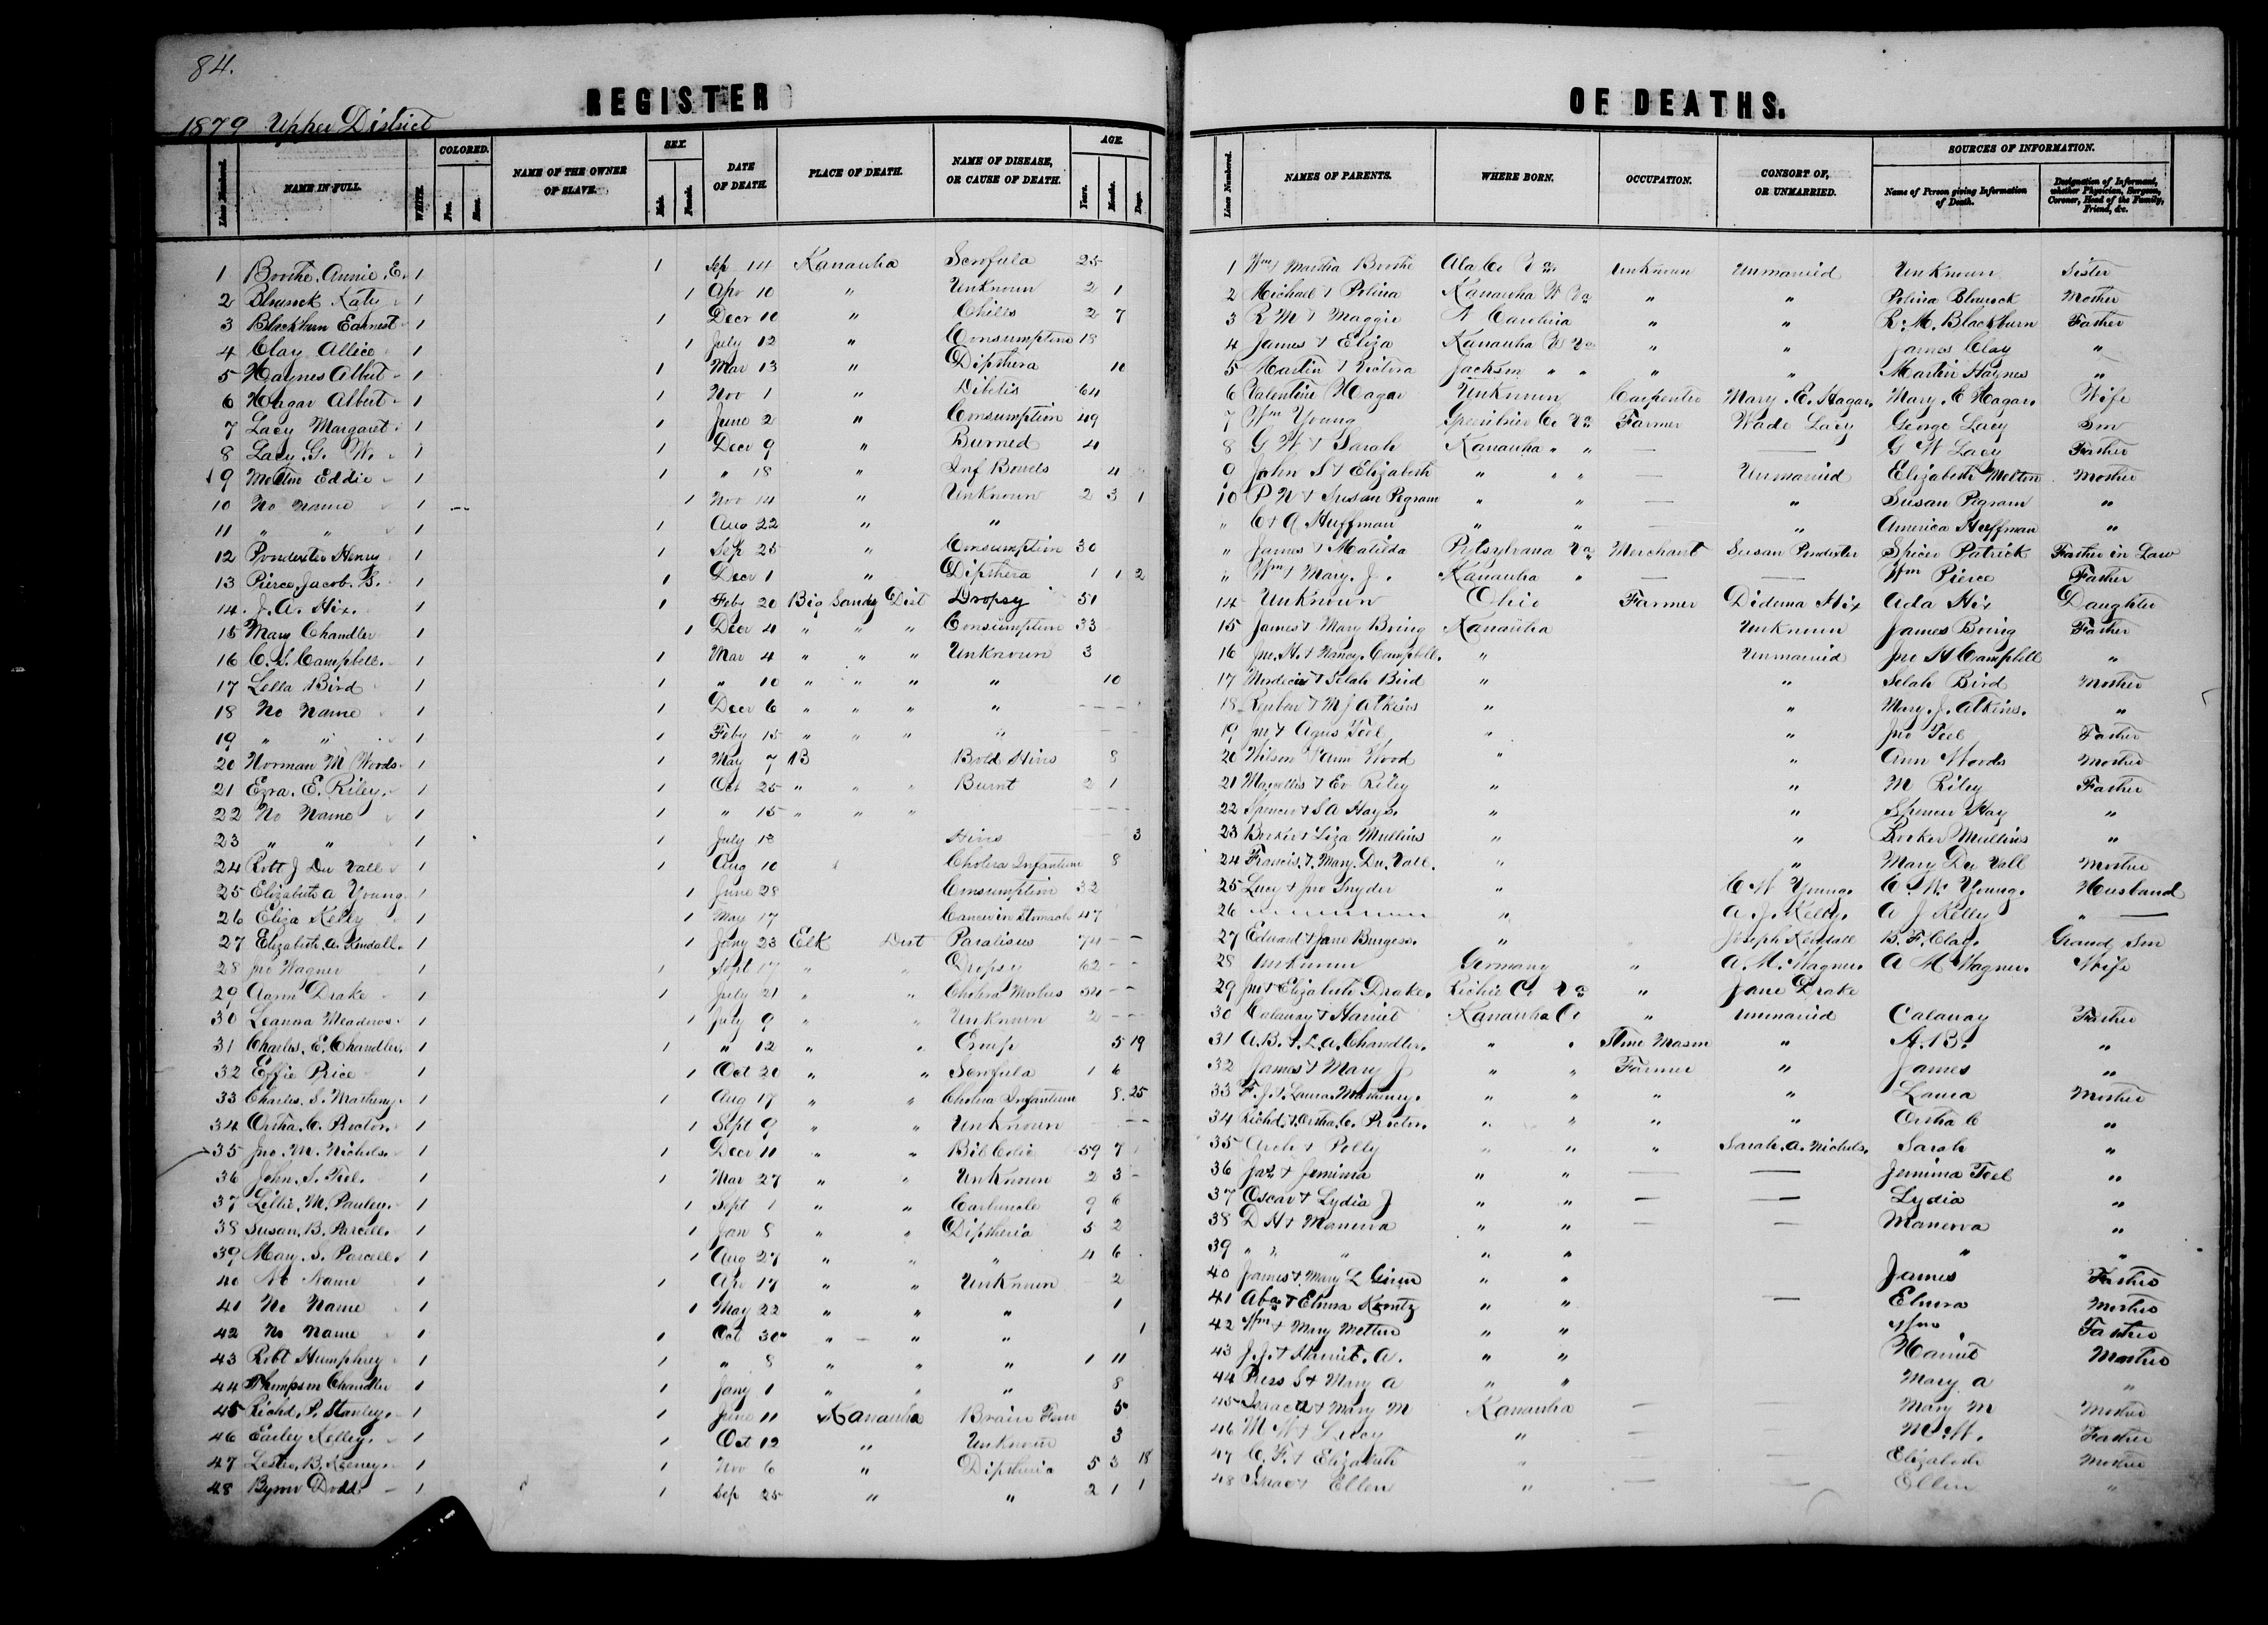 84.
REGISTER OF DEATHS.
1879 Upper District
Lines Numbered. NAME IN FULL. WHITE. COLORED. Free. Slave. NAME OF THE OWNER OF SLAVE. SEX. Male. Female. DATE OF DEATH. PLACE OF DEATH. NAME OF DISEASE, OR CAUSE OF DEATH. AGE. Years. Months. Days. Lines Numbered. NAMES OF PARENTS. WHERE BORN. OCCUPATION. CONSORT OF, OR UNMARRIED. SOURCES OF INFORMATION. Name of Person giving Information of Death. Designation of Informant, whether Physician, Surgeon, Coroner, Head of the Family, Friend, &c.
1 Boothe, Annie, E. 1 1 Sep 14 Kanawha Scrofula 25 1 Wm & Martha Boothe Ala Co Va Unknown Unmarried Unknown Sister
2 Katy 1 1 Apr 10 " Unknown 2 1 2 Michael & Polina Kanawha W Va " " Polina Mother
3 Blackburn Earnest 1 1 Decr 10 " Chills 2 7 3 R M & Maggie N Carolina " " R. M. Blackburn Father
4 Clay Allice 1 1 July 12 " Consumption 18 4 James & Eliza Kanawha W Va " " James Clay "
5 Haynes Albert 1 1 Mar 13 " Dipthera 10 5 Martin & Victora Jackson " " " " Martin Haynes "
6 Hagar Albert 1 1 Nov 1 " Dibetis 64 6 Valentine Hagar Unknown Carpenter Mary. E. Hagar. Mary. E Hagar. Wife
7 Lacy Margaret 1 1 June 2 " Consumption 49 7 Wm Young Co Va Farmer Wade Lacy George Lacy Son
8 Lacy. G. W. 1 1 Decr 9 " Burned 4 8 G W & Sarah Kanawha " " — — G W Lacy Father
9 Eddie 1 1 " 18 " Inf Bowels 4 9 John S & Elizabeth " " " — Unmarried Elizabeth Melton Mother
10 No Name 1 1 Nov 14 " Unknown 2 3 1 10 P N & Susan Pegram " " — " Susan Pegram "
11 " " 1 1 Aug 22 " " " C & A Huffman " " — " America Huffman "
12 Poindexter Henry 1 1 Sep 25 " Consumption 30 " James & Matilda Pitsylvana Va Merchant Susan Poindexter Spicer Patrick Father in Law
13 Pierce, Jacob. S. 1 1 Decr 1 " Dipthera 1 1 2 " Wm & Mary. J. Kanawha " — — Wm Pierce Father
14. J. A. Hix. 1 1 Feby 20 Big Sandy Dist Dropsy 51 14 Unknown Ohio Farmer Didema Hix Ada Hix Daughter
15 Mary Chandler 1 1 Decr 4 " " " Consumption 33 15 James & Mary Boing Kanawha Unknown James Boing Father
16 C. S. Campbell. 1 1 Mar 4 " " " Unknown 3 16 Jno. H. & Nancy. Campbell. " Unmarried Jno H Campbell "
17 Lella Bird 1 1 " 10 " " " " 10 17 & Selah Bird " " Selah Bird Mother
18 No Name 1 1 Decr 6 " " " " 18 Reuben & M J Atkins " " Mary. J. Atkins. "
19 " " 1 1 Feby 15 " " " " 19 Jno & Agnis Teel " " Jno Teel Father
20 Norman M Woods 1 1 May 7 B Bold Hives 8 20 Wilson & Ann Wood " " Ann Woods Mother
21 Ezra. E. Riley. 1 1 Oct 25 " " " Burnt 2 1 21 Marcellis & Ev Riley " " M Riley Father
22 No Name 1 1 " 15 " " " 22 Spencer & S A Hays. " " Spencer Hay "
23 " " 1 1 July 18 Hives 3 23 Booker & Liza Mullins " " Booker Mullins "
24 Robt J Du Vall 1 1 Aug 10 Cholera Infantum 8 24 Francis. & Mary. Du. Vall. " " Mary Du Vall Mother
25 Elizabeth A Young 1 1 June 28 Consumption 32 25 Lucy & Jno Snyder " C W Young. C. W. Young. Husband
26 Eliza Kelly 1 1 May 17 Cancer in Stomach 47 26 " A. J. Kelly. A J Kelly "
27 Elizabeth. A. Kendall. 1 1 Jany 23 Elk Dist Paralisus 74 27 Edward & Jane Burgess. " Joseph Kendall B. F. Clay. Grand Son
28 Jno Wagner 1 1 Sept 17 " " Dropsy 62 28 Unknown Germany " A. M. Wagner. A M Wagner. Wife
29 Aann Drake 1 1 July 21 " " Cholera Morbus 54 29 Jno & Elizabeth Drake. Richie Co Va " Jane Drake
30 Leanna Meadows 1 1 July 9 " " Unknown 2 30 Calaway & Harriet Kanawha Co " Unmarried Calaway Father
31 Charles. E. Chandler. 1 1 " 12 " " Croup 5 19 31 A. B. & L. A. Chandler. " " Stone Mason " A. B. "
32 Effie Price 1 1 Oct 20 " " Scrofula 1 6 32 James & Mary J " " Farmer " James "
33 Charles. S. Matheny. 1 1 Aug 17 " " Cholera Infantum 8 25 33 F. J. & Laura. Matheny. " " " " Laura Mother
34 Ortha. C. Proctor. 1 1 Sept 9 " " Unknown 34 Richd. & Ortha. C. Proctor. " " " " Ortha C "
35 Jno. M. Nichols. 1 1 Decr 11 " " Bil Colic 59 7 35 Arch & Polly " " " Sarah. A. Nichols. Sarah "
36 John. S. Teel. 1 1 Mar 27 " " Unknown 2 3 36 Jas & Jemima " " — — Jemima Teel "
37 Lillie. M. Pauley. 1 1 Sept 1 " " Carbuncle 9 6 37 Oscar & Lydia J " " — — Lydia "
38 Susan. B. Parcell. 1 1 Jan 8 " " Diptheria 5 2 38 D H & Manerva " " — — Manerva "
39 Mary. S. Parcell 1 1 Aug 27 " " " 4 6 39 " " " " " " "
40 No Name 1 1 Apr 17 " " Unknown 2 40 James & Mary L " " James Father
41 No Name 1 1 May 22 " " " 1 41 & Elmira Kuntz " " — Elmira Mother
42 No Name 1 1 Oct 30 " — " " 1 42 Wm & Mary " " Wm Father
43 Robt Humphrey 1 1 " 8 " " " 1 11 43 J. J. & Harriet. A. " " Harriet Mother
44 Thompson Chandler 1 1 Jany 1 " " " 8 44 Press S & Mary A " " Mary A "
45 Richd. P. Stanley. 1 1 June 11 Kanawha Brain Fever 5 45 Isaac A & Mary M Kanawha — Mary M Mother
46 Earley Kelley. 1 1 Oct 12 " Unknown 3 46 M W & Lucy " — M. W. Father
47 Lester. B. Keeney. 1 1 Nov 6 " Diptheria 5 3 18 47 C. F. & Elizabeth " — — Elizabeth Mother
48 Byron Dodd 1 1 Sep 25 " " 2 1 1 48 Isaac & Ellen " — — Ellen "